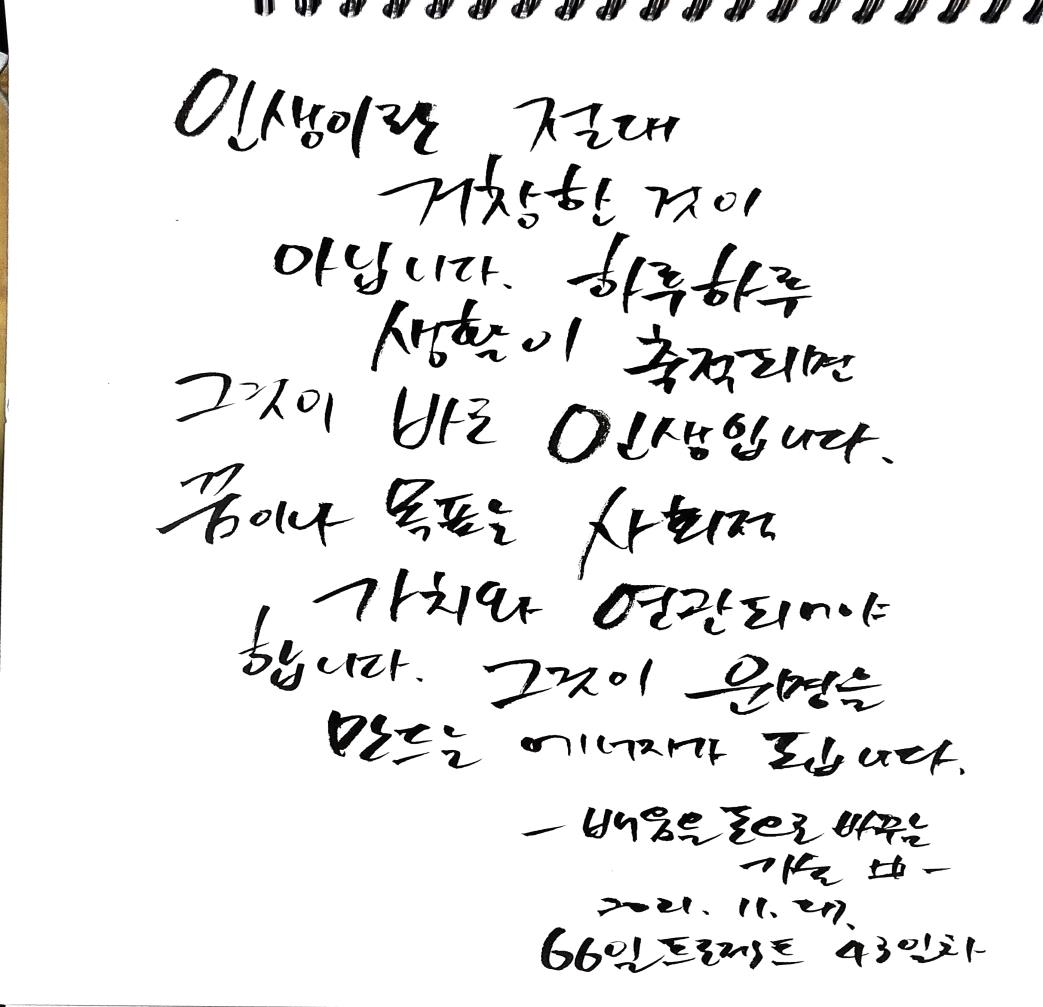 인생이란 절대
거창한 것이
아닙니다. 하루하루
생활이 축적되면
그것이 바로 인생입니다.
꿈이나 목표는 사회적
가치와 연관되어야
합니다. 그것이 운명을
만드는 에너지가 됩니다.
- 배움을 돈으로 바꾸는
기술 中 -
2021. 11. 27.
66일프로젝트 43일차